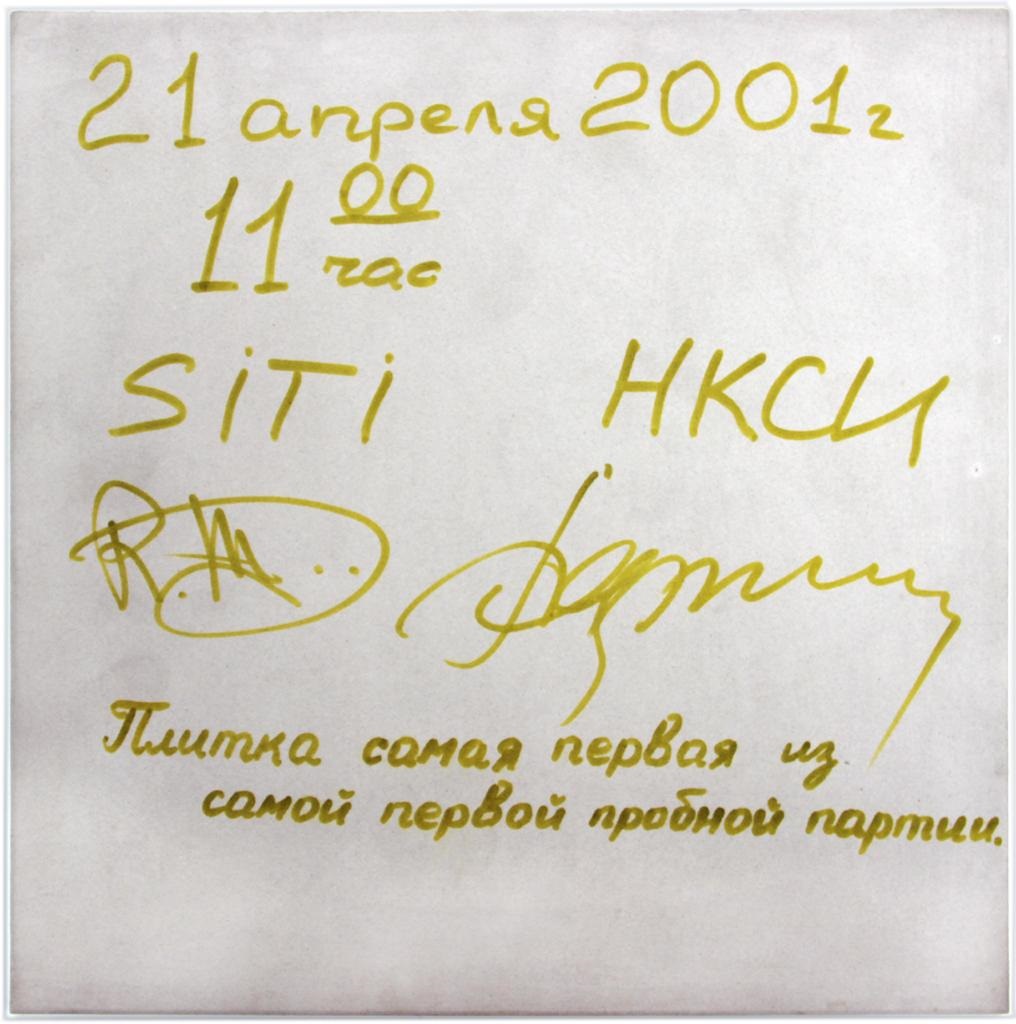 21 апреля 2001г
11 00 час
SiTi НКСИ
Плитка самая первая из
самой первой пробной партии.